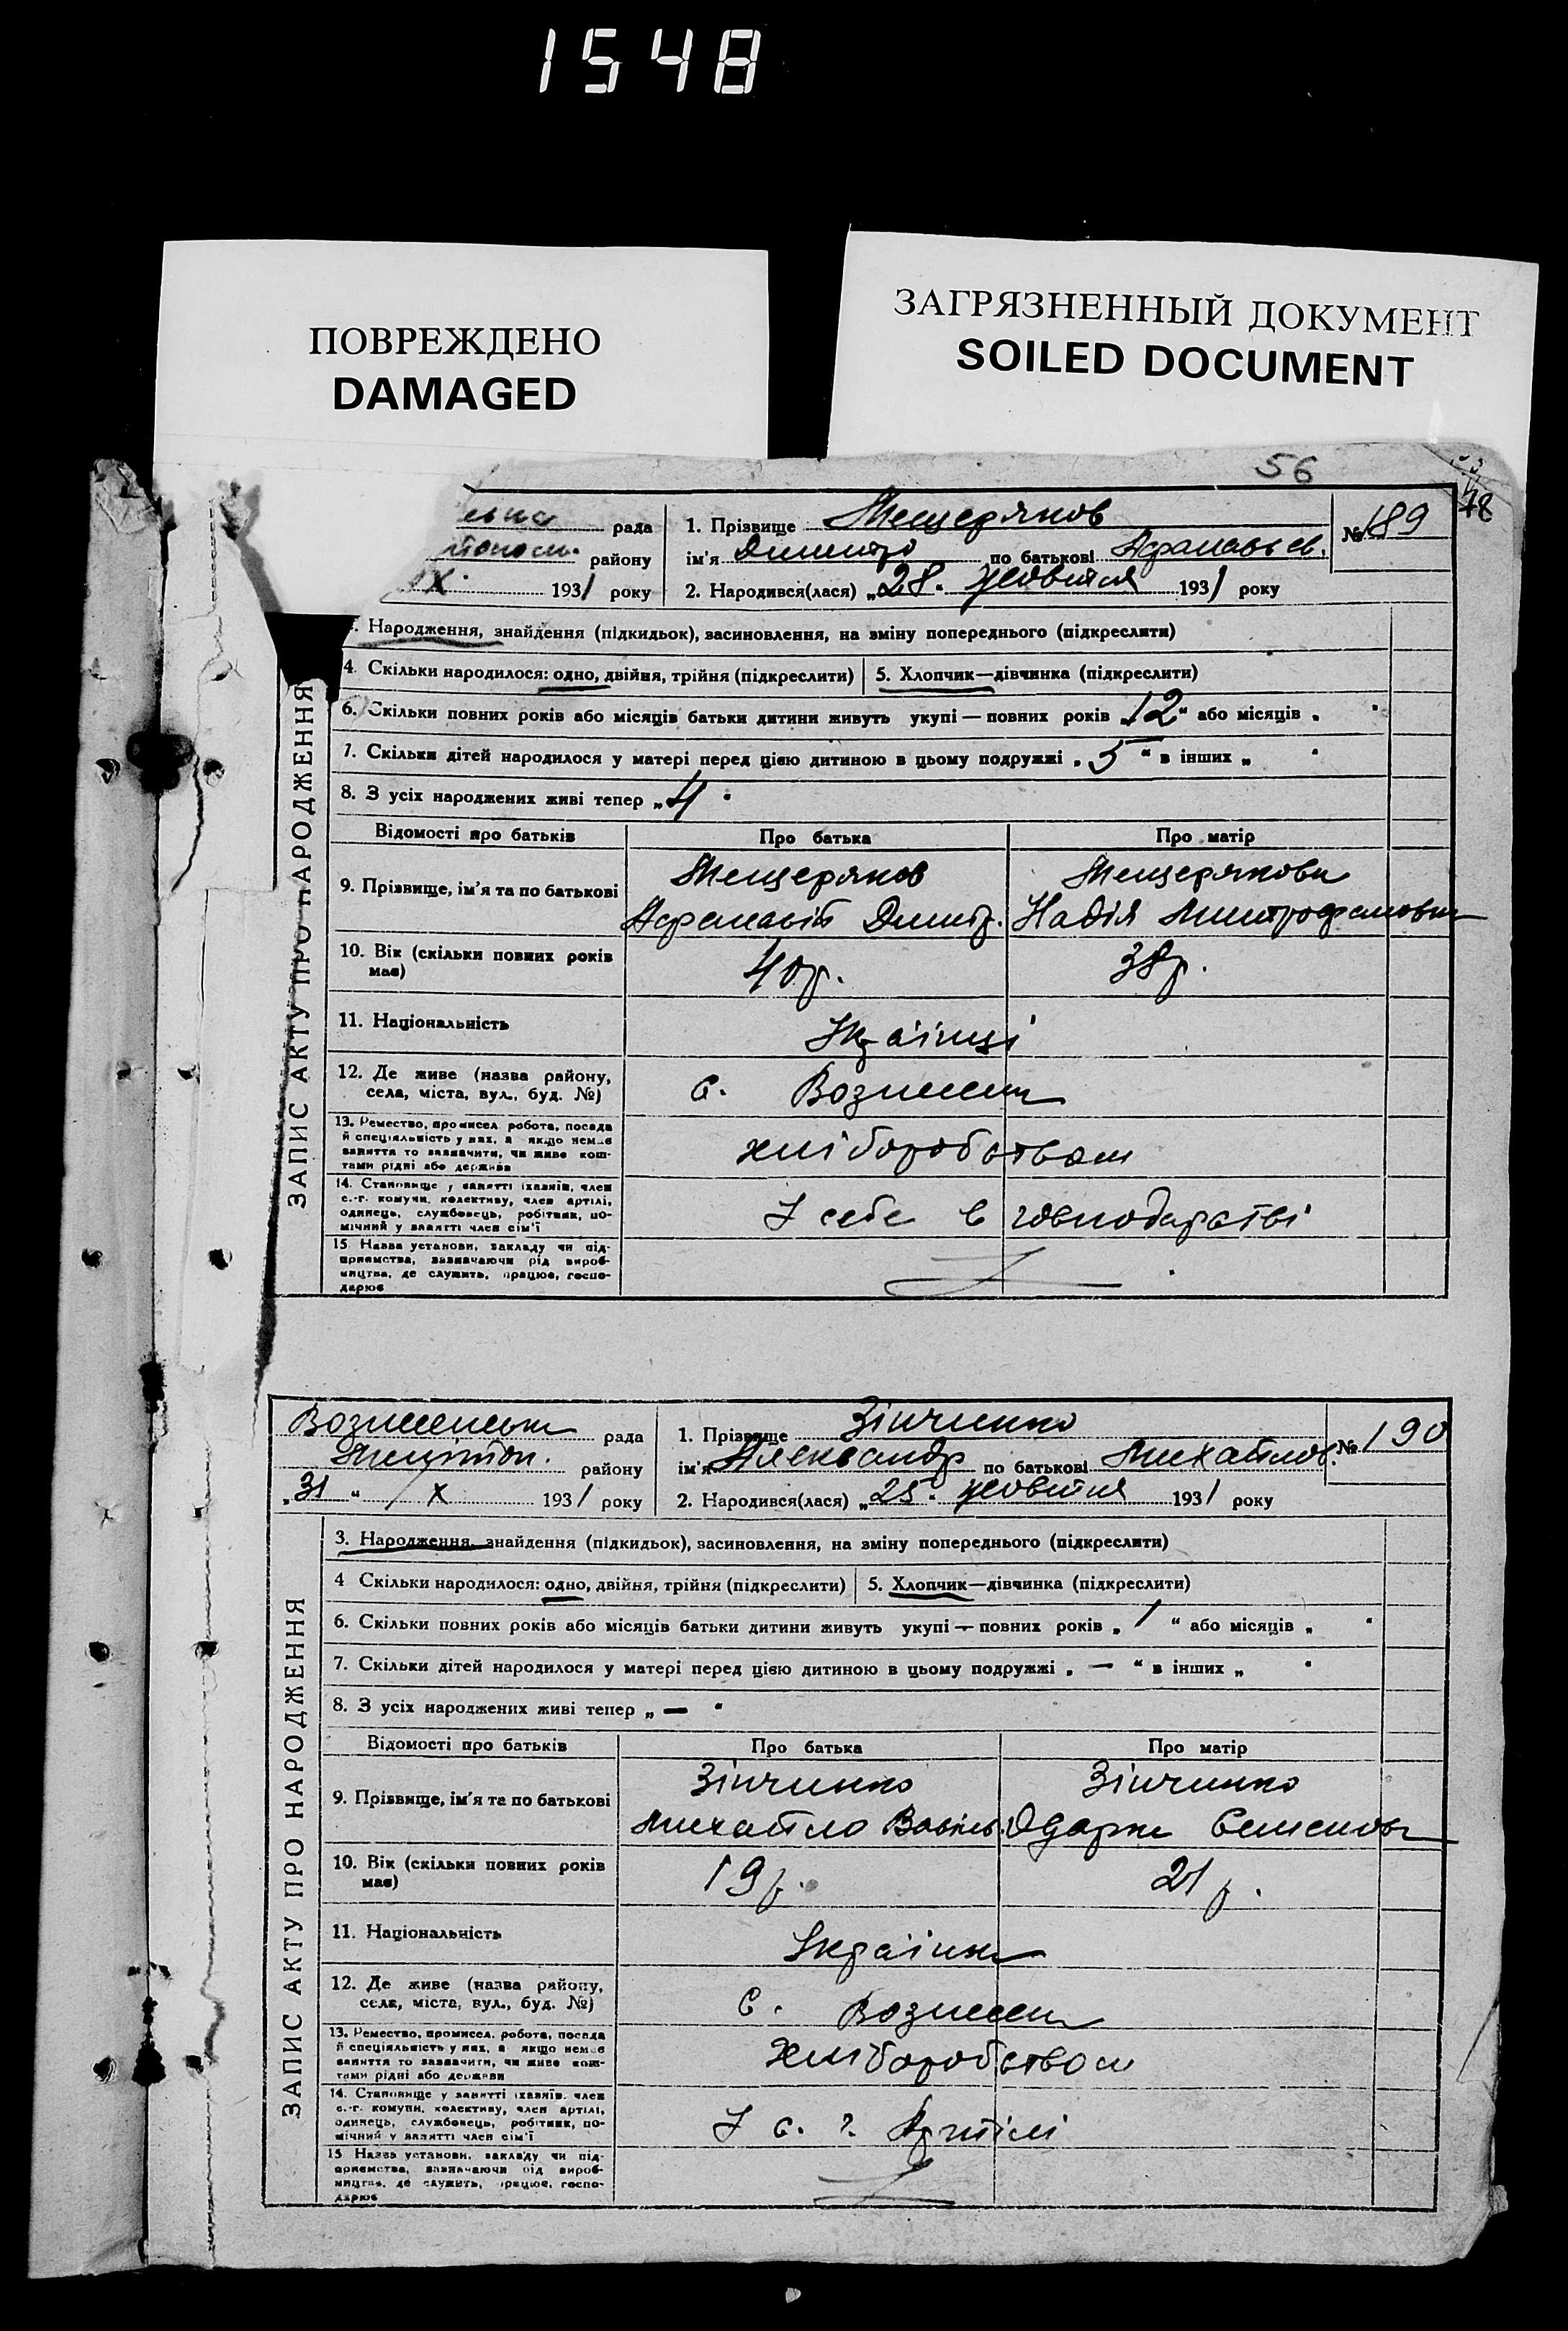 1548
ПОВРЕЖДЕНО
DAMAGED
ЗАГРЯЗНЕННЫЙ ДОКУМЕНТ
SOILED DOCUMENT
56
78
рада
району
X 1931 року
1. Прізвище Мещеряков
ім'я Дмитро по батькові Афанасьєв.
2. Народився(лася) „28" жовтня 1931 року
№ 189
ЗАПИС АКТУ ПРО НАРОДЖЕННЯ
Народження, знайдення (підкидьок), засиновлення, на зміну попереднього (підкреслити)
4. Скільки народилося: одно, двійня, трійня (підкреслити) 5. Хлопчик—дівчинка (підкреслити)
6. Скільки повних років або місяців батьки дитини живуть укупі — повних років „12" або місяців „ "
7. Скільки дітей народилося у матері перед цією дитиною в цьому подружжі „5" в інших „ "
8. З усіх народжених живі тепер „4"
Відомості про батьків Про батька Про матір
9. Прізвище, ім'я та по батькові
Мещеряков Мещерякова
Афанасій Дмитр. Надія Митрофановна
10. Вік (скільки повних років має) 40 р. 38 р.
11. Національність Українці
12. Де живе (назва району, села, міста, вул., буд. №) с. Вознесен
13. Ремество, промисел, робота, посада
й спеціяльність у них, а якщо немає
заняття то зазначити, чи живе кош-
тами рідні або держави
хліборобством
14. Становище у занятті (хазяїн, член
с.-г. комуни, колективу, член артілі,
одинець, службовець, робітник, по-
мічний у занятті член сім'ї
У себе в господарстві
15 Назва установи, закладу чи під-
приємства, зазначаючи рід вироб-
ництва, де служить, працює, госпо-
дарює
Вознесенська рада
району
„31" X 1931 року
1. Прізвище Зінченко
ім'я Александр по батькові Михайлов.
2. Народився(лася) „25" жовтня 1931 року
№ 190
ЗАПИС АКТУ ПРО НАРОДЖЕННЯ
3. Народження, знайдення (підкидьок), засиновлення, на зміну попереднього (підкреслити)
4 Скільки народилося: одно, двійня, трійня (підкреслити) 5. Хлопчик—дівчинка (підкреслити)
6. Скільки повних років або місяців батьки дитини живуть укупі — повних років „1" або місяців „ "
7. Скільки дітей народилося у матері перед цією дитиною в цьому подружжі „—" в інших „ "
8. З усіх народжених живі тепер „—"
Відомості про батьків Про батька Про матір
9. Прізвище, ім'я та по батькові
Зінченко Зінченко
Михайло Одарка Семеновна
10. Вік (скільки повних років має) 19 р. 21 р.
11. Національність
12. Де живе (назва району, села, міста, вул., буд. №) с. Вознесен
13. Ремество, промисел, робота, посада
й спеціяльність у них, а якщо немає
заняття то зазначити, чи живе кош-
тами рідні або держави
Хліборобством
14. Становище у занятті (хазяїн, член
с.-г. комуни, колективу, член артілі,
одинець, службовець, робітник, по-
мічний у занятті член сім'ї
У с. г. Артілі
15 Назва установи, закладу чи під-
приємства, зазначаючи рід вироб-
ництва, де служить, працює, госпо-
дарює